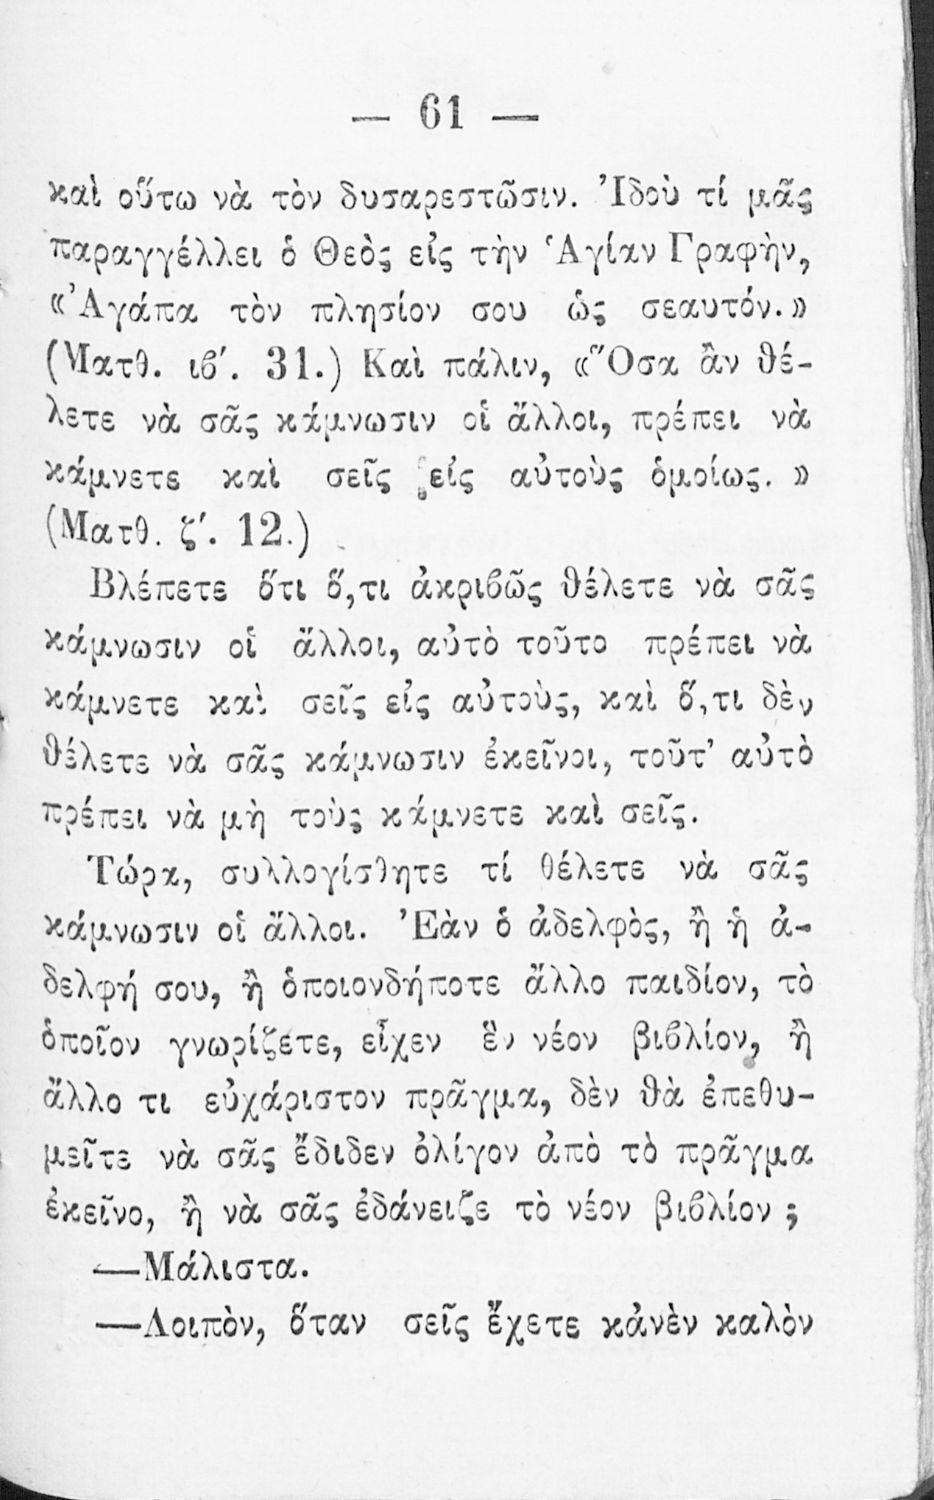 — 61 —
καὶ οὕτω νὰ τὸν δυσαρεστῶσιν. Ἰδοὺ τί μᾶς
παραγγέλλει ὁ Θεὸς εἰς τὴν Ἁγίαν Γραφὴν,
«Ἀγάπα τὸν πλησίον σου ὡς σεαυτόν.»
(Ματθ. ιϐ′. 31.) Καὶ πάλιν, «Ὅσα ἂν θέ-
λετε νὰ σᾶς κάμνωσιν οἱ ἄλλοι, πρέπει νὰ
κάμνετε καὶ σεῖς εἰς αὐτοὺς ὁμοίως. »
(Ματθ. ζ′. 12.)
Βλέπετε ὅτι ὅ,τι ἀκριϐῶς θέλετε νὰ σᾶς
κάμνωσιν οἱ ἄλλοι, αὐτὸ τοῦτο πρέπει νὰ
κάμνετε καὶ σεῖς εἰς αὐτοὺς, καὶ ὅ,τι δὲν
θέλετε νὰ σᾶς κάμνωσιν ἐκεῖνοι, τοῦτ’ αὐτὸ
πρέπει νὰ μὴ τοὺς κάμνετε καὶ σεῖς.
Τώρα, συλλογίσθητε τί θέλετε νὰ σᾶς
κάμνωσιν οἱ ἄλλοι. Ἐὰν ὁ ἀδελφὸς, ἢ ἡ ἀ-
δελφή σου, ἢ ὁποιονδήποτε ἄλλο παιδίον, τὸ
ὁποῖον γνωρίζετε, εἶχεν ἓν νέον βιϐλίον, ἢ
ἄλλο τι εὐχάριστον πρᾶγμα, δὲν θὰ ἐπεθυ-
μεῖτε νὰ σᾶς ἔδιδεν ὀλίγον ἀπὸ τὸ πρᾶγμα
ἐκεῖνο, ἢ νὰ σᾶς ἐδάνειζε τὸ νέον βιϐλίον ;
—Μάλιστα.
—Λοιπὸν, ὅταν σεῖς ἔχετε κἀνὲν καλὸν